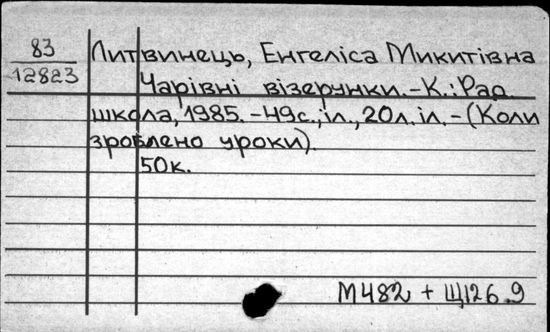 83
12823
Литвинець, Енгеліса Микитівна
Чарівні візерунки.-К.: Рад.
школа, 1985.-49с.; іл., 20л.іл.-(Коли
зроблено уроки).
50к.
М482 + Щ126.9